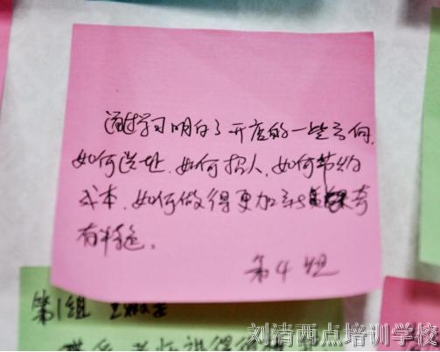 通过学习明白了开店的一些方向,
如何选址,如何招人,如何节约
成本,如何做得更加
有特色。
第4组
第1组
刘清西点培训学校